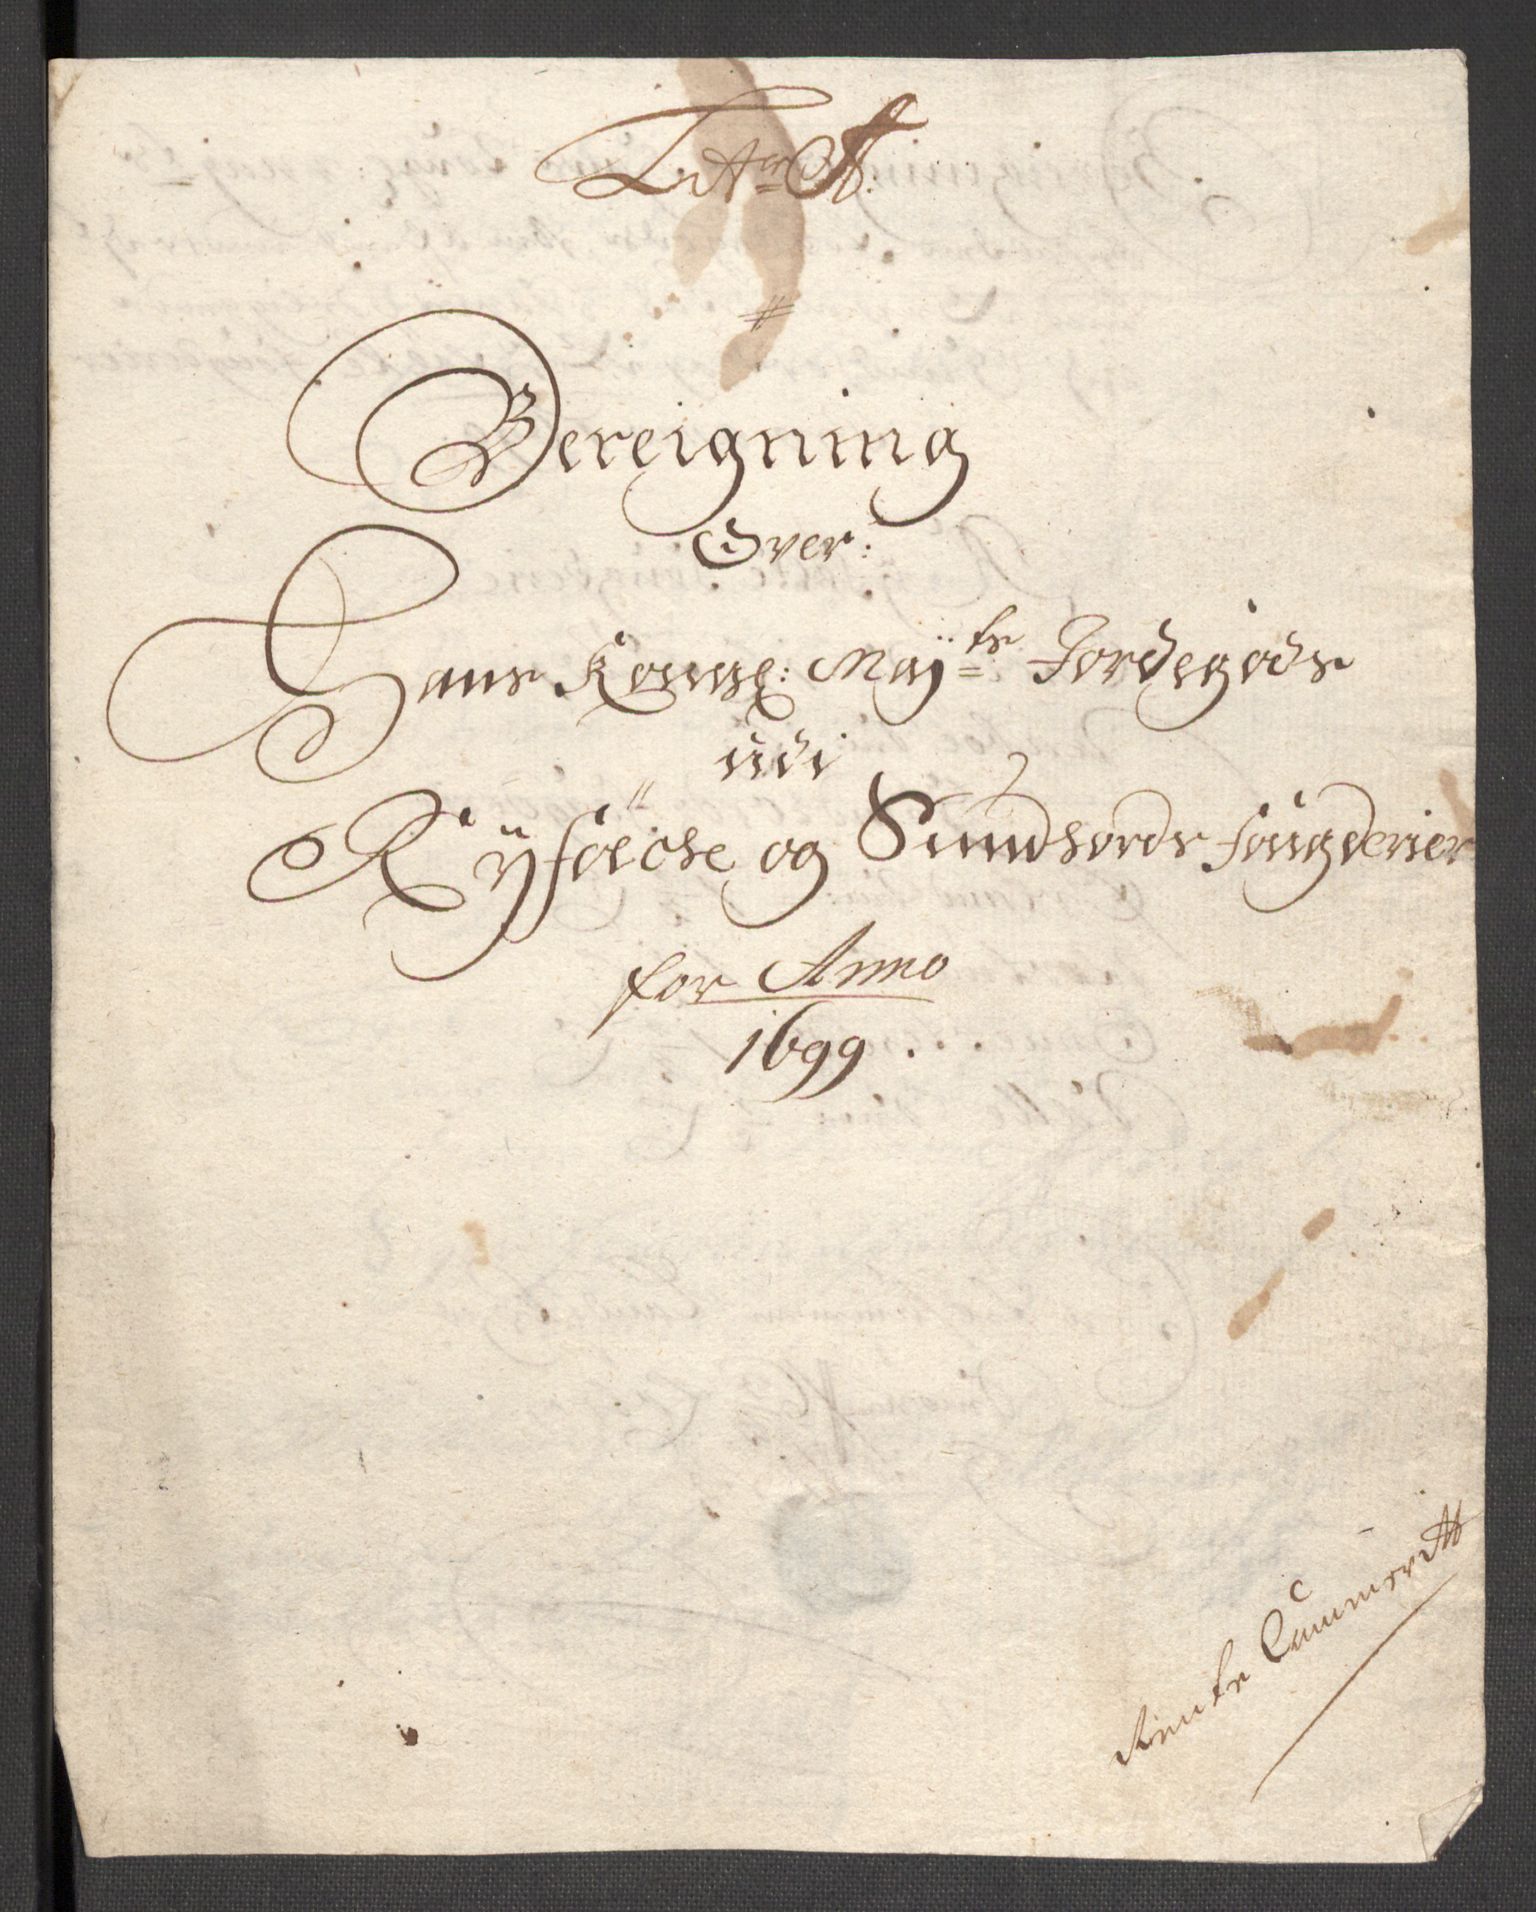 Litr A:
Bereigning
Over:
Hans Kongl: Maÿ:ts Jordegods
udi
Rÿfölche og Sundhords fougderier
for Anno
1699.
Rente Cammer